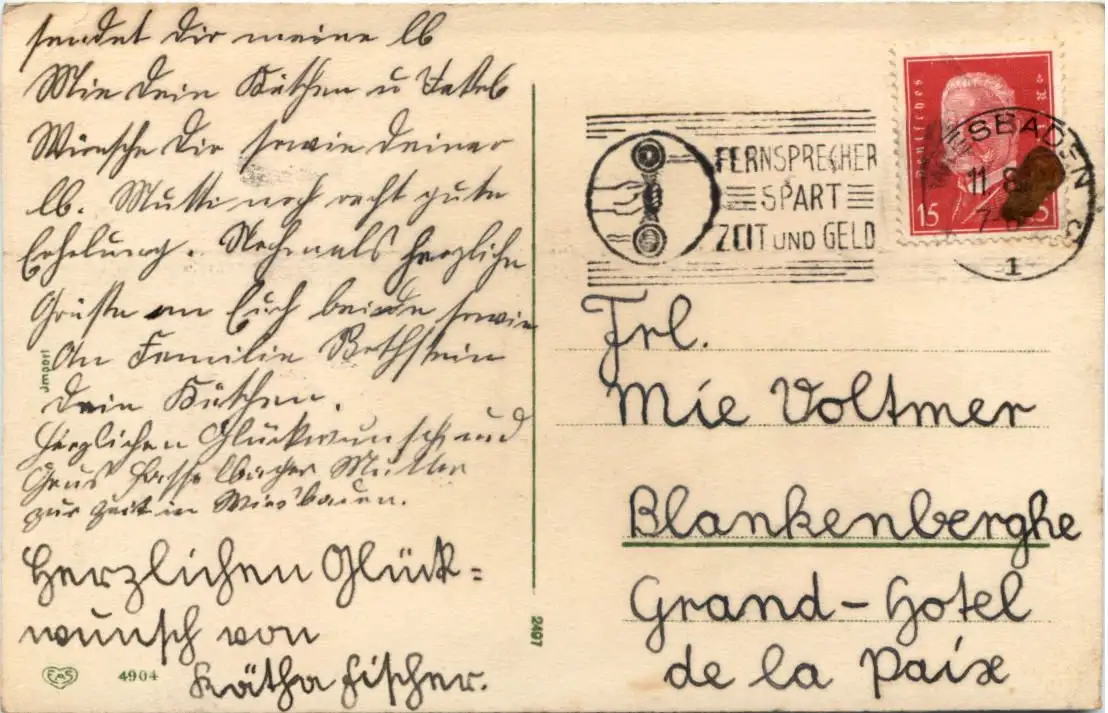 sendet Dir meine lb
Mie Dein Käthen u
Wünsche Dir sowie Deiner
lb. Mutti noch recht gute
Erholung. Nochmals herzliche
Grüße an Euch beide sowie
An Familie Rothstein
Dein Käthen.
Herzlichen Glückwunsch und
Gruß Mutter
zur Zeit in Wiesbaden.
Herzlichen Glück=
wunsch von
Kätha Fischer.
Import
EAS
4904
2497
FERNSPRECHER
SPART
ZEIT UND GELD
Deutsches
15
SBADEN
11 8
1
Frl.
Mie Voltmer
Blankenberghe
Grand-Hotel
de la Paix